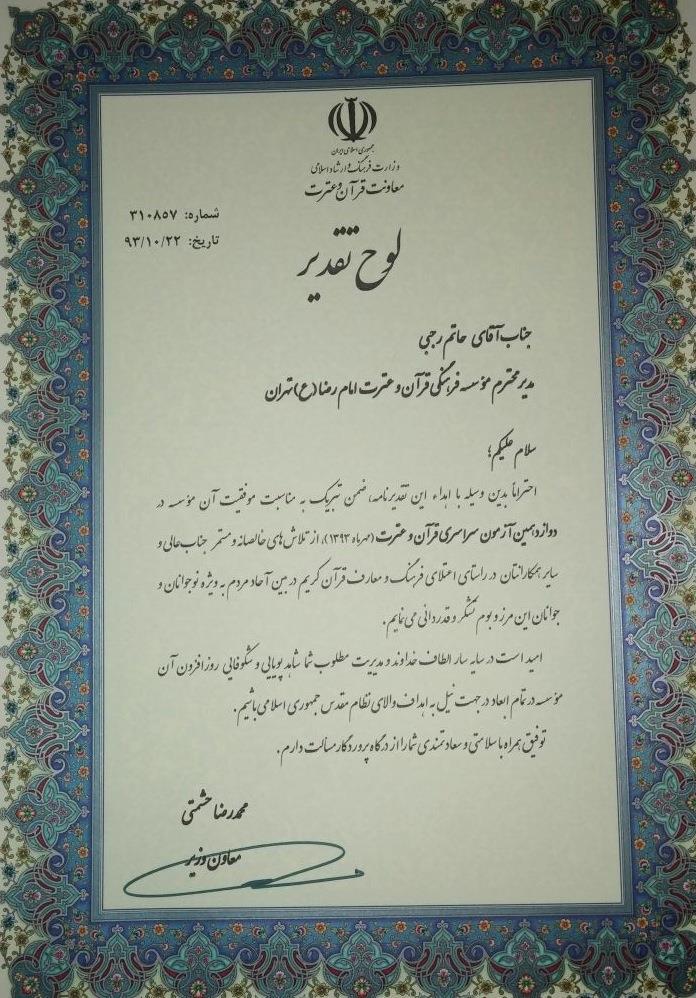 جمهوری اسلامی ایران
وزارت فرهنگ و ارشاد اسلامی
معاونت قرآن و عترت
شماره: ۳۱۰۸۵۷
تاریخ: ۹۳/۱۰/۲۲
لوح تقدیر
جناب آقای حاتم رجبی
مدیر محترم مؤسسه فرهنگی قرآن و عترت امام رضا (ع) تهران
سلام علیکم؛
احتراماً بدین وسیله با اهداء این تقدیرنامه، ضمن تبریک به مناسبت موفقیت آن مؤسسه در
دوازدهمین آزمون سراسری قرآن و عترت (مهرماه ۱۳۹۳)، از تلاش های خالصانه و مستمر جناب عالی و
سایر همکارانتان در راستای اعتلای فرهنگ و معارف قرآن کریم در بین آحاد مردم به ویژه نوجوانان و
جوانان این مرز و بوم تشکر و قدردانی می نمایم.
امید است در سایه سار الطاف خداوند و مدیریت مطلوب شما شاهد پویایی و شکوفایی روزافزون آن
مؤسسه در تمام ابعاد در جهت نیل به اهداف والای نظام مقدس جمهوری اسلامی باشیم.
توفیق همراه با سلامتی و سعادتمندی شما را از درگاه پروردگار مسألت دارم.
محمدرضا حشمتی
معاون وزیر